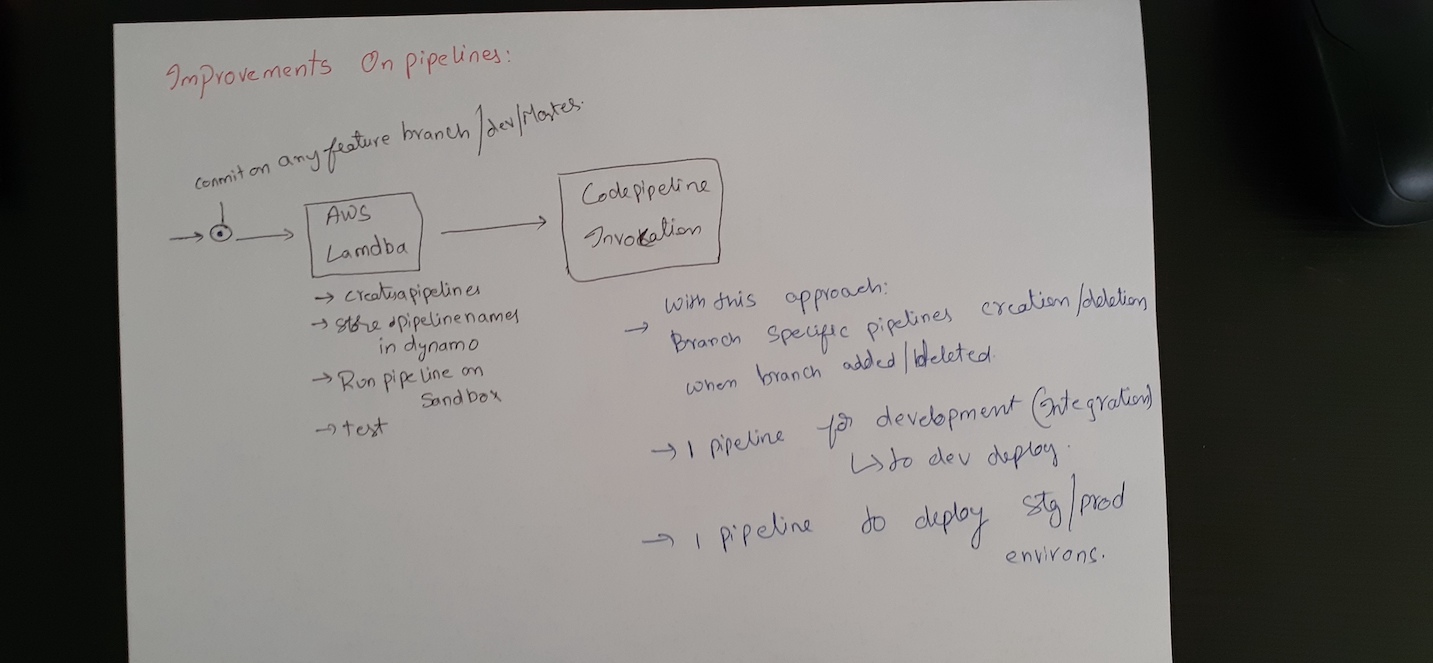 Improvements On pipelines:
Commit on any feature branch/dev/Master.
AWS
Lamdba
→ creates a pipelines
→ store pipeline names
in dynamo
→ Run pipeline on
Sandbox
→ test
Codepipeline
Invokation
With this approach:
→ Branch specific pipelines creation/deletion
when branch added/deleted.
→ 1 pipeline for development (Integration)
↳ to dev deploy.
→ 1 pipeline to deploy stg/prod
environs.